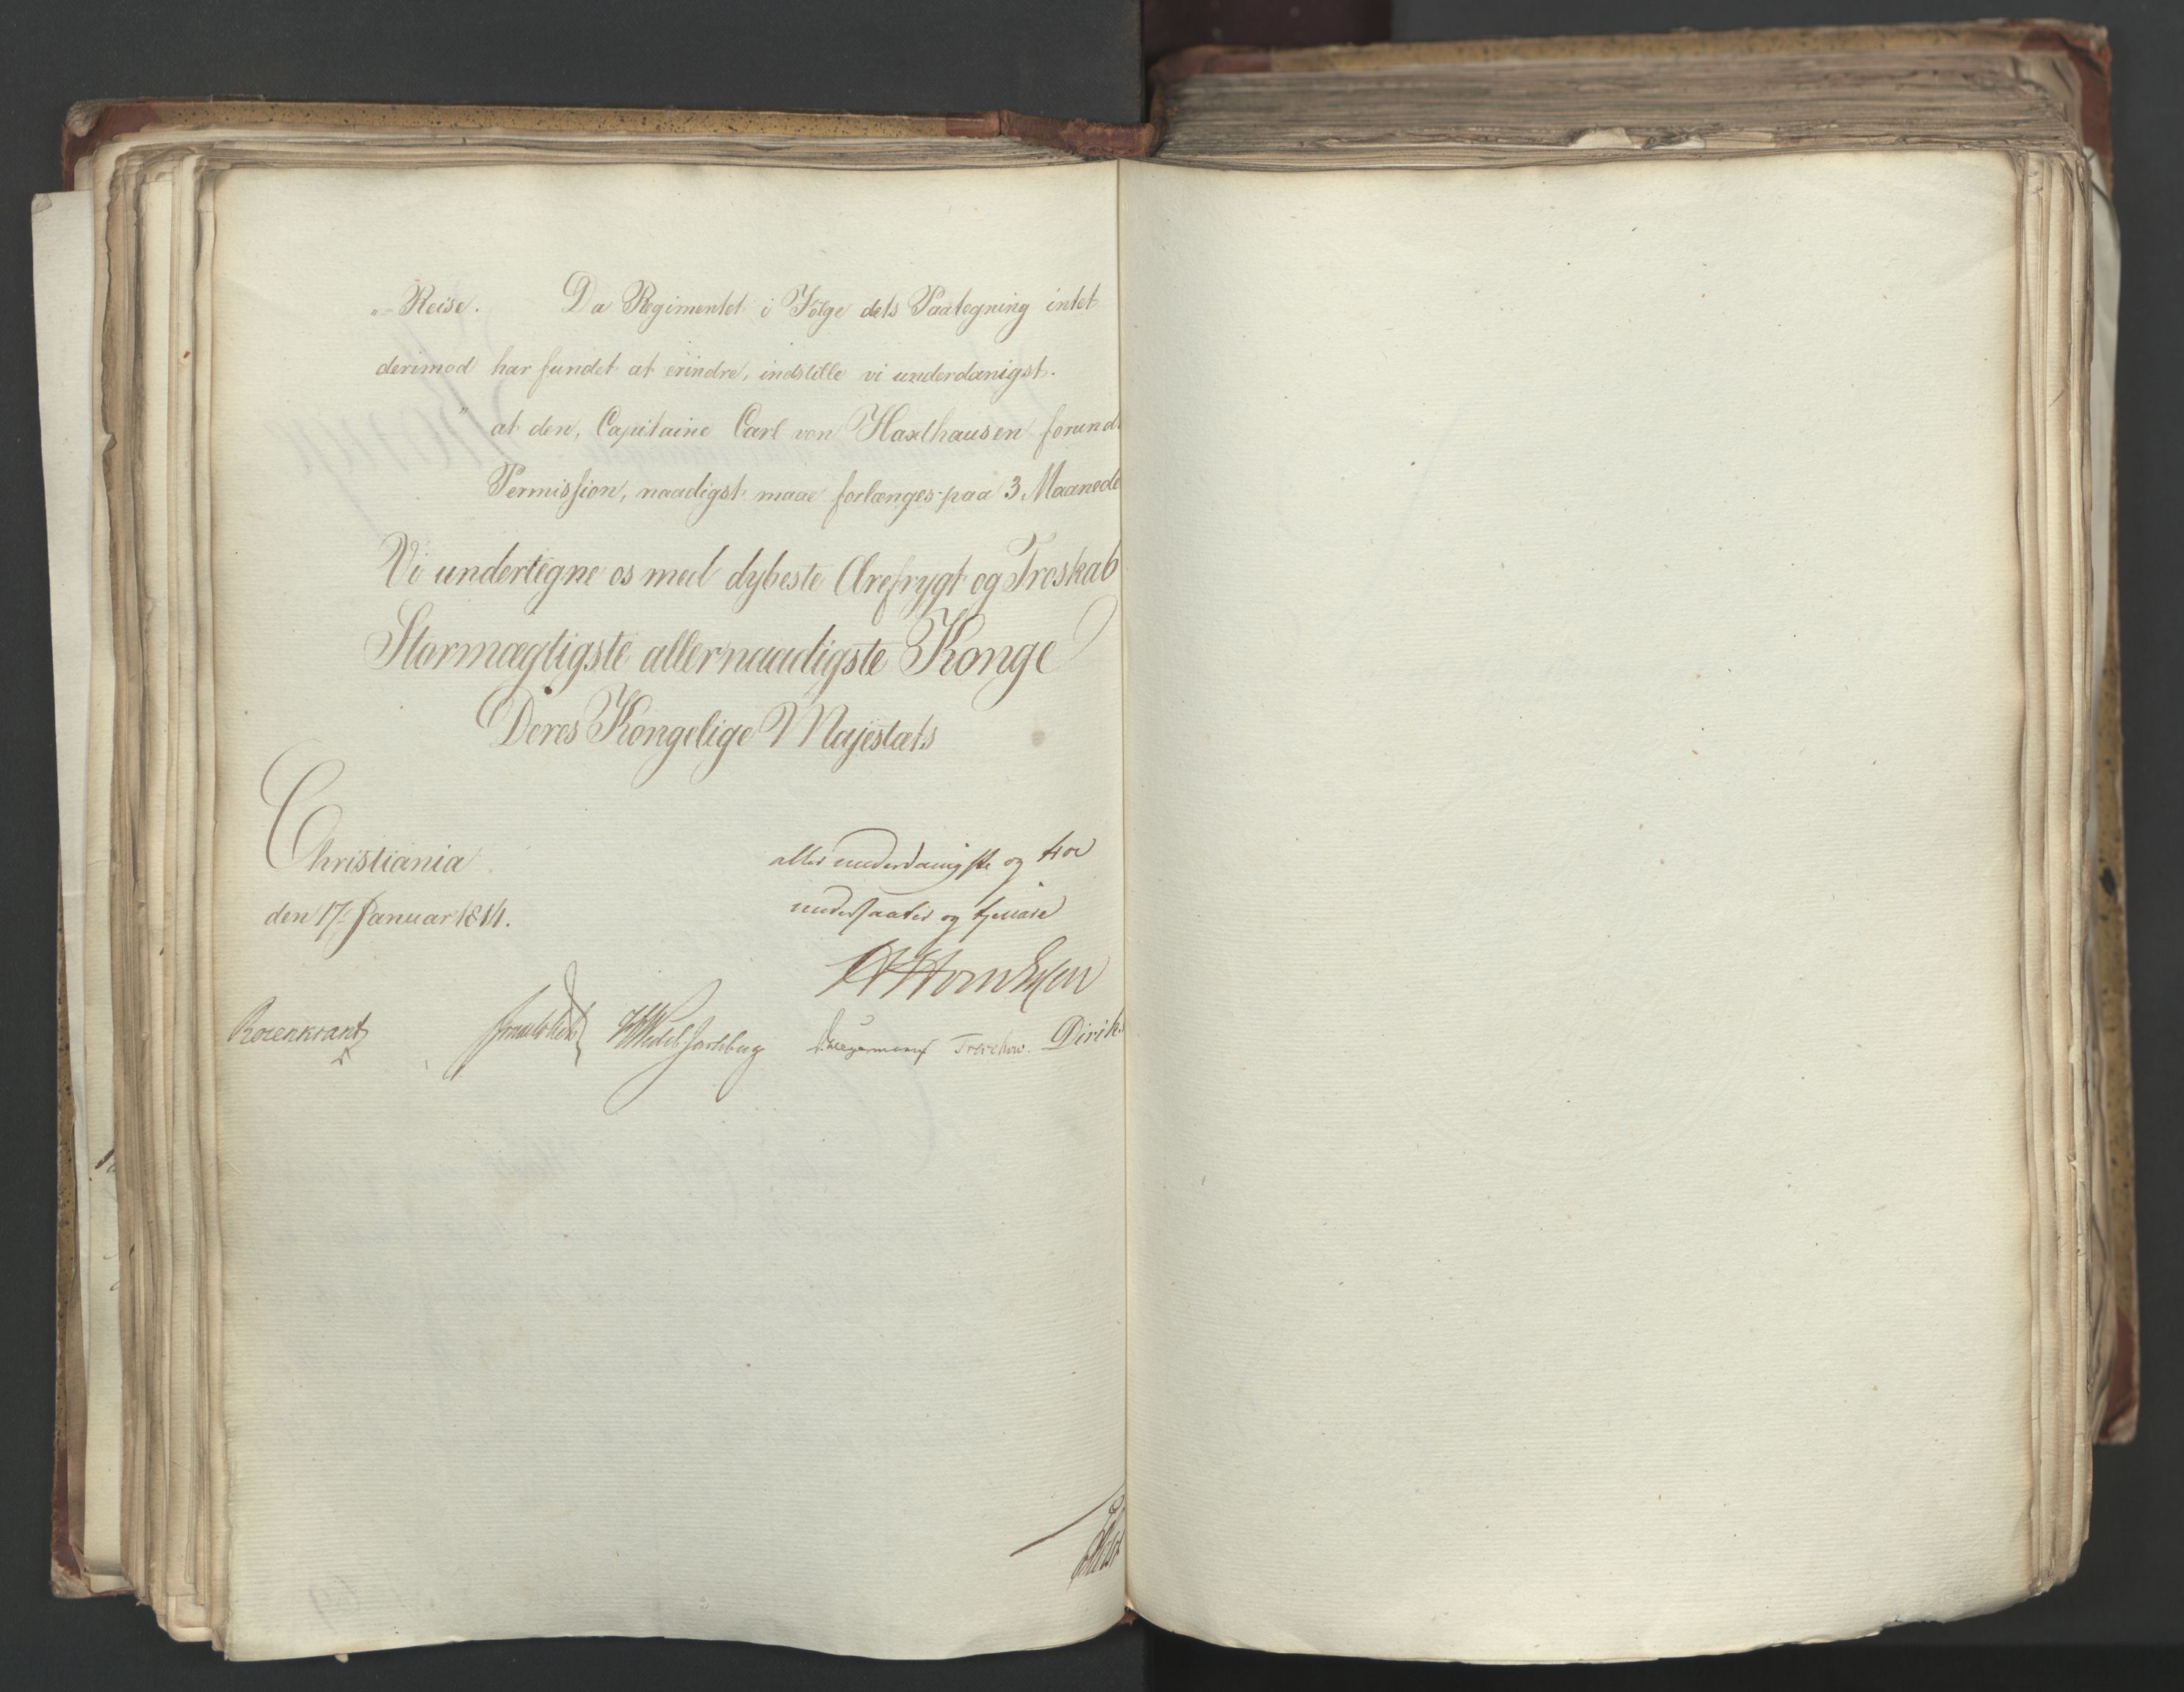 "Reise. Da Regimentet i Følge dets Paategning intet
derimod har fundet at erindre, indstille vi underdanigst.
" at den, Capitaine Carl von Haxthausen forundt
Permission, naadigst maae forlænges paa 3 Maaneder
Vi undertegne os med dybeste Ærefrygt og Troskab
Stormægtigste allernaadigste Konge
Deres Kongelige Majestæts
Christiania
den 17 Januar 1814.
allerunderdanigste og troe
undersaatter og tjenere
Rosenkrantz Wedel Jarlsberg Hegermann Treschow. Diriks